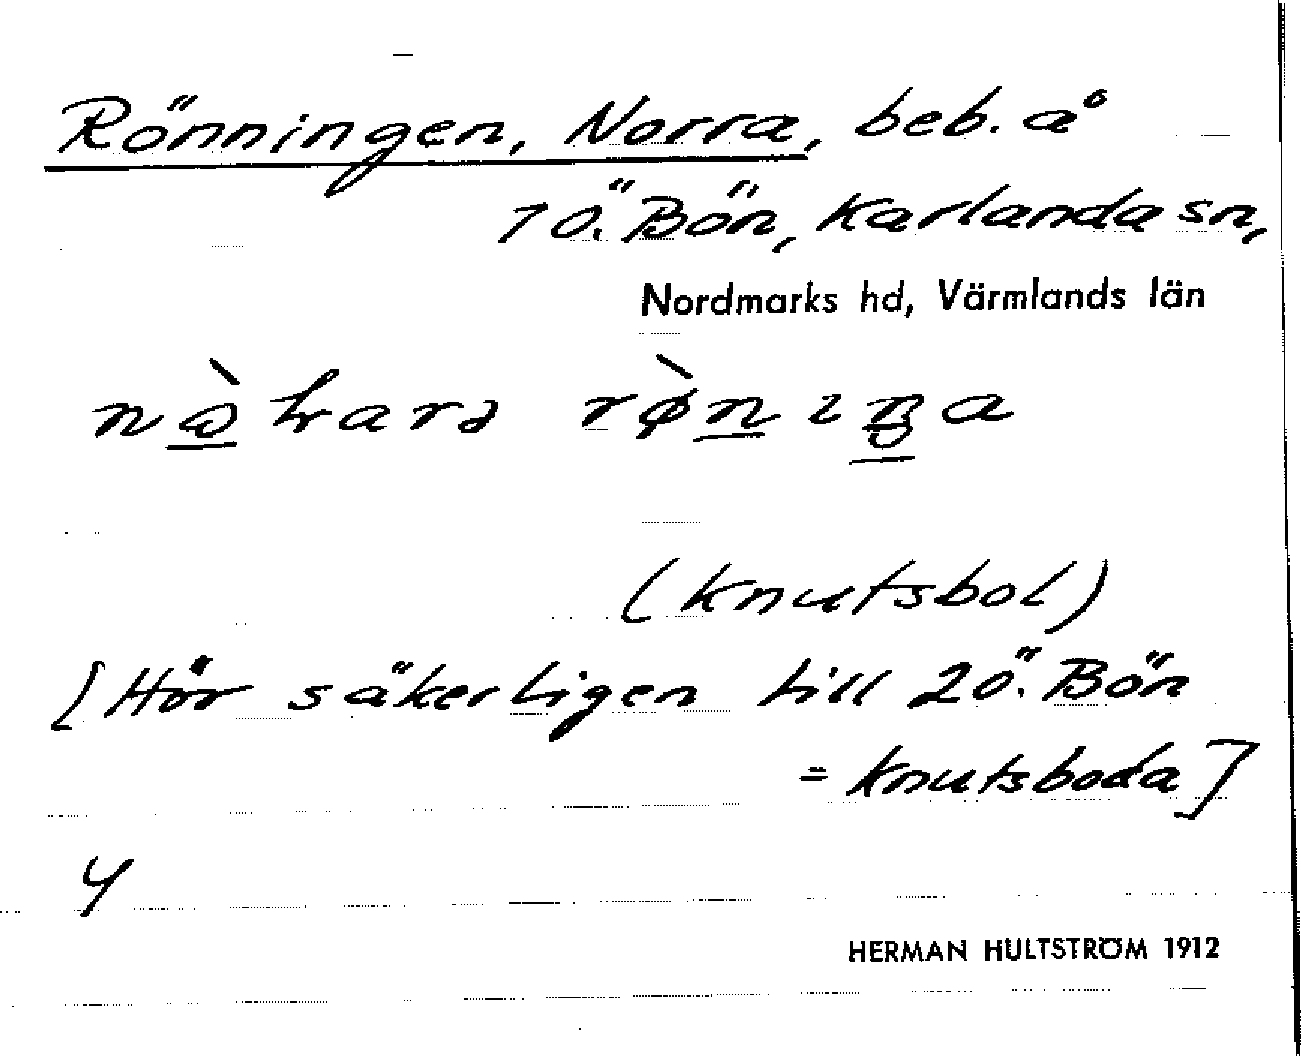 Rönningen, Norra, beb. å
1 Ö. Bön, Karlanda sn,
Nordmarks hd, Värmlands län
(Knutsbol)
[Hör säkerligen till 2 Ö. Bön
= Knutsboda]
4
HERMAN HULTSTRÖM 1912